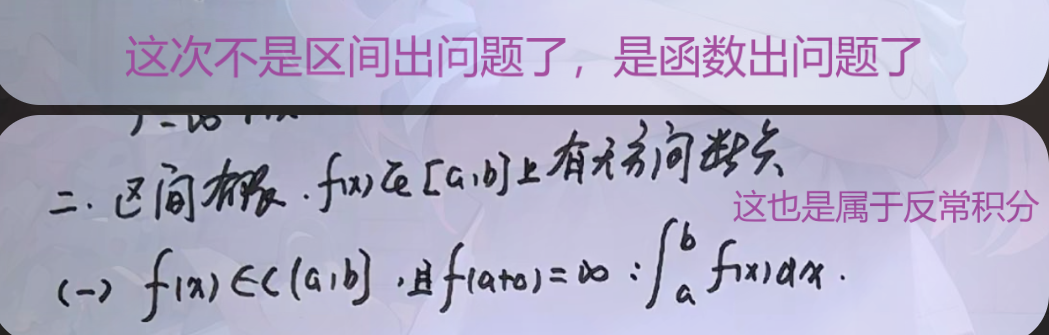 这次不是区间出问题了，是函数出问题了
二.区间有限.f(x)在[a,b]上有无穷间断点
这也是属于反常积分
(一) f(x)∈C(a,b],且f(a+0)=∞:∫_a^b f(x)dx.